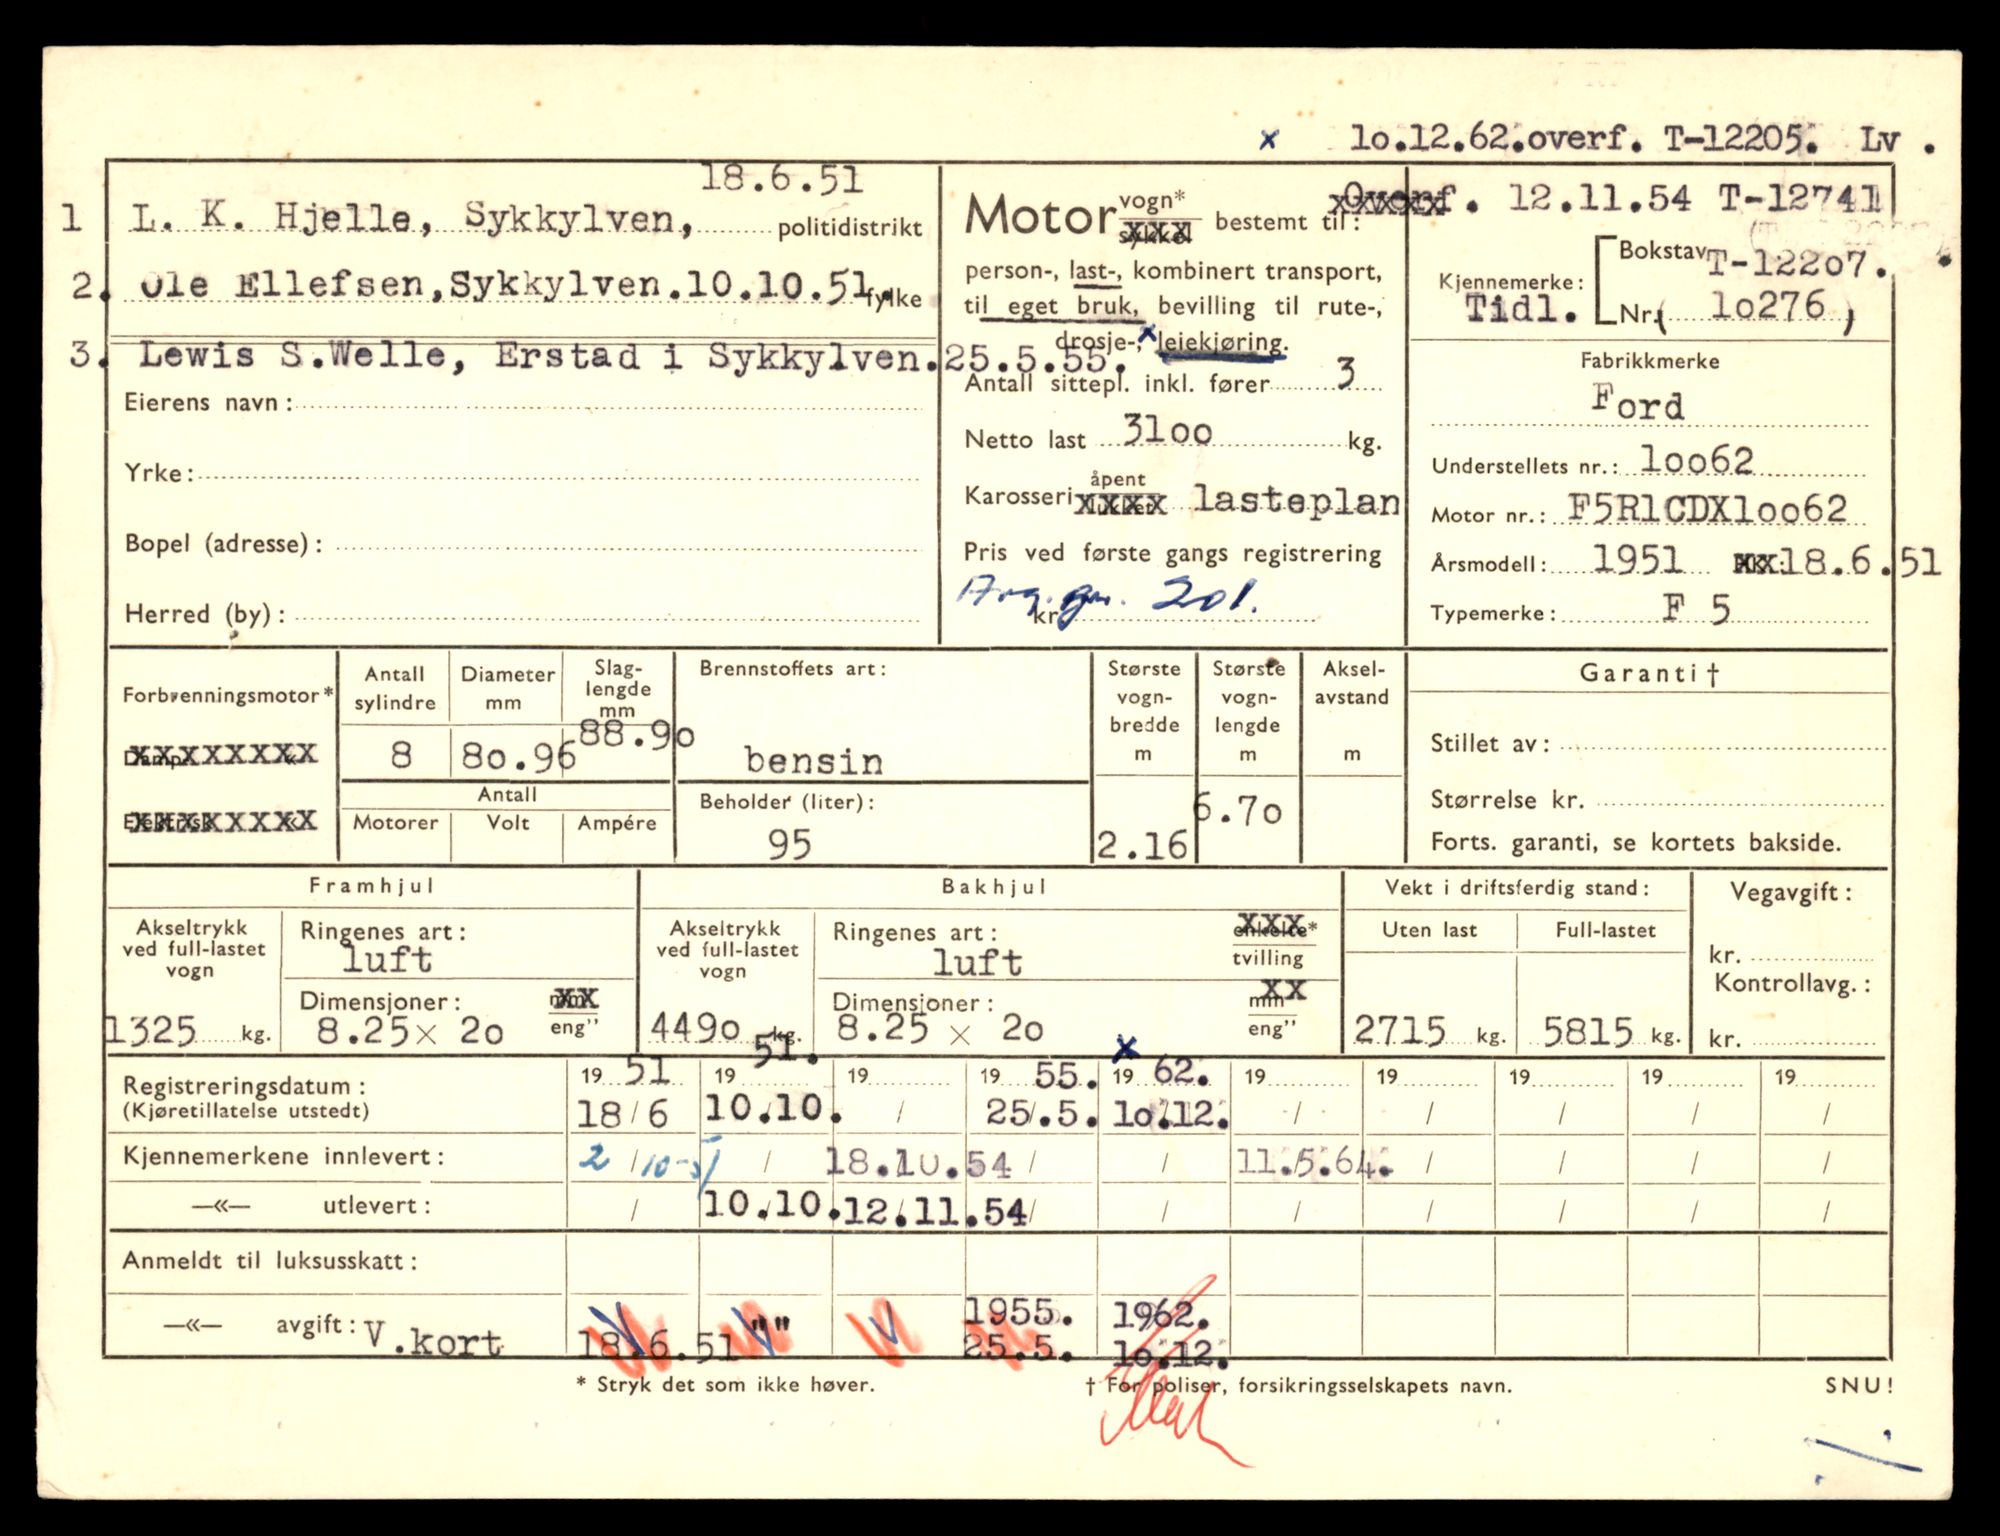 x lo.12.62.overf. T-12205. Lv .
18.6.51
1 L. K. Hjelle, Sykkylven, politidistrikt
2. Ole Ellefsen,Sykkylven.10.10.51. fylke
3. Lewis S.Welle, Erstad i Sykkylven.25.5.55.
Eierens navn:
Yrke:
Bopel (adresse):
Herred (by):
Motor vogn* xxx bestemt til:
person-, last-, kombinert transport,
til eget bruk, bevilling til rute-,
drosje-, x leiekjøring.
Antall sittepl. inkl. fører 3
Netto last 3loo kg.
Karosseri åpent xxxx lasteplan
Pris ved første gangs registrering
kr. 201.
Overf. 12.11.54 T-12741
Kjennemerke: Bokstav T-122o7.
Tidl. Nr. ( lo276 )
Fabrikkmerke
Ford
Understellets nr.: loo62
Motor nr.: F5RlCDXloo62
Årsmodell: 1951 xx 18.6.51
Typemerke: F 5
Forbrenningsmotor*
xxxxxxxx «
xxxxxxxx «
Antall sylindre
8
Diameter mm
8o.96
Slag-lengde mm
88.9o
Antall
Motorer Volt Ampére
Brennstoffets art:
bensin
Beholder (liter):
95
Største vogn-bredde m
2.16
Største vogn-lengde m
6.7o
Aksel-avstand m
Garanti †
Stillet av:
Størrelse kr.
Forts. garanti, se kortets bakside.
Framhjul
Akseltrykk ved full-lastet vogn
1325 kg.
Ringenes art:
luft
Dimensjoner: xx eng”
8.25 × 2o
Bakhjul
Akseltrykk ved full-lastet vogn
449o kg.
Ringenes art: xxx enkelte* tvilling
luft
Dimensjoner: xx mm eng”
8.25 × 2o
Vekt i driftsferdig stand:
Uten last Full-lastet
2715 kg. 5815 kg.
Vegavgift:
kr.
Kontrollavg.:
kr.
Registreringsdatum: 19 51 19 51. 19 19 55. x 19 62. 19 19 19 19 19
(Kjøretillatelse utstedt) 18/6 10.10. / 25/.5. lo.12. / / / / /
Kjennemerkene innlevert: 2/10-51 / 18.10.54 / / 11.5.64. / / / /
—«— utlevert: / 10.10. 12.11.54 / / / / / / /
Anmeldt til luksusskatt:
—«— avgift: V.kort 18.6.51 "" 1955. 25.5. 1962. lo.12.
* Stryk det som ikke høver. † For poliser, forsikringsselskapets navn. SNU!